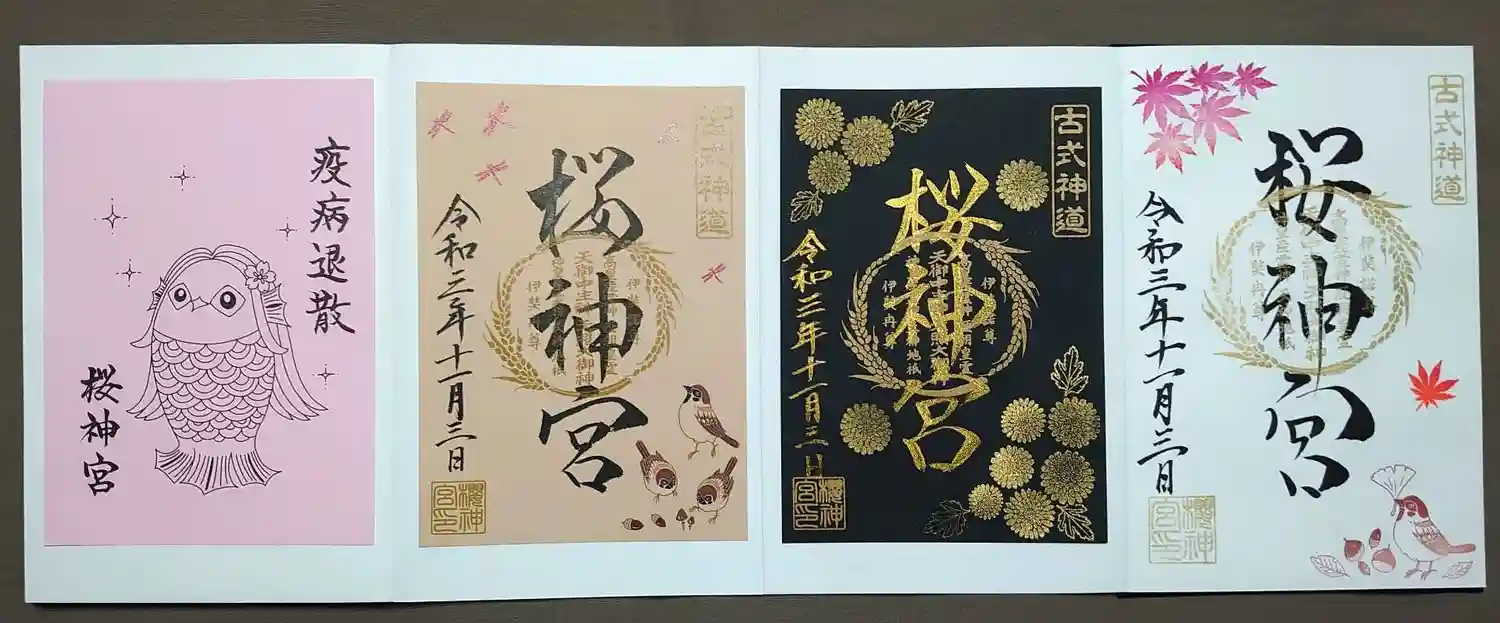 疫病退散
桜神宮
古式神道
桜神宮
令和三年十一月三日
櫻神
宮印
古式神道
桜神宮
伊奘冉尊
令和三年十一月三日
櫻神
宮印
古式神道
桜神宮
伊奘冉尊
令和三年十一月三日
櫻神
宮印